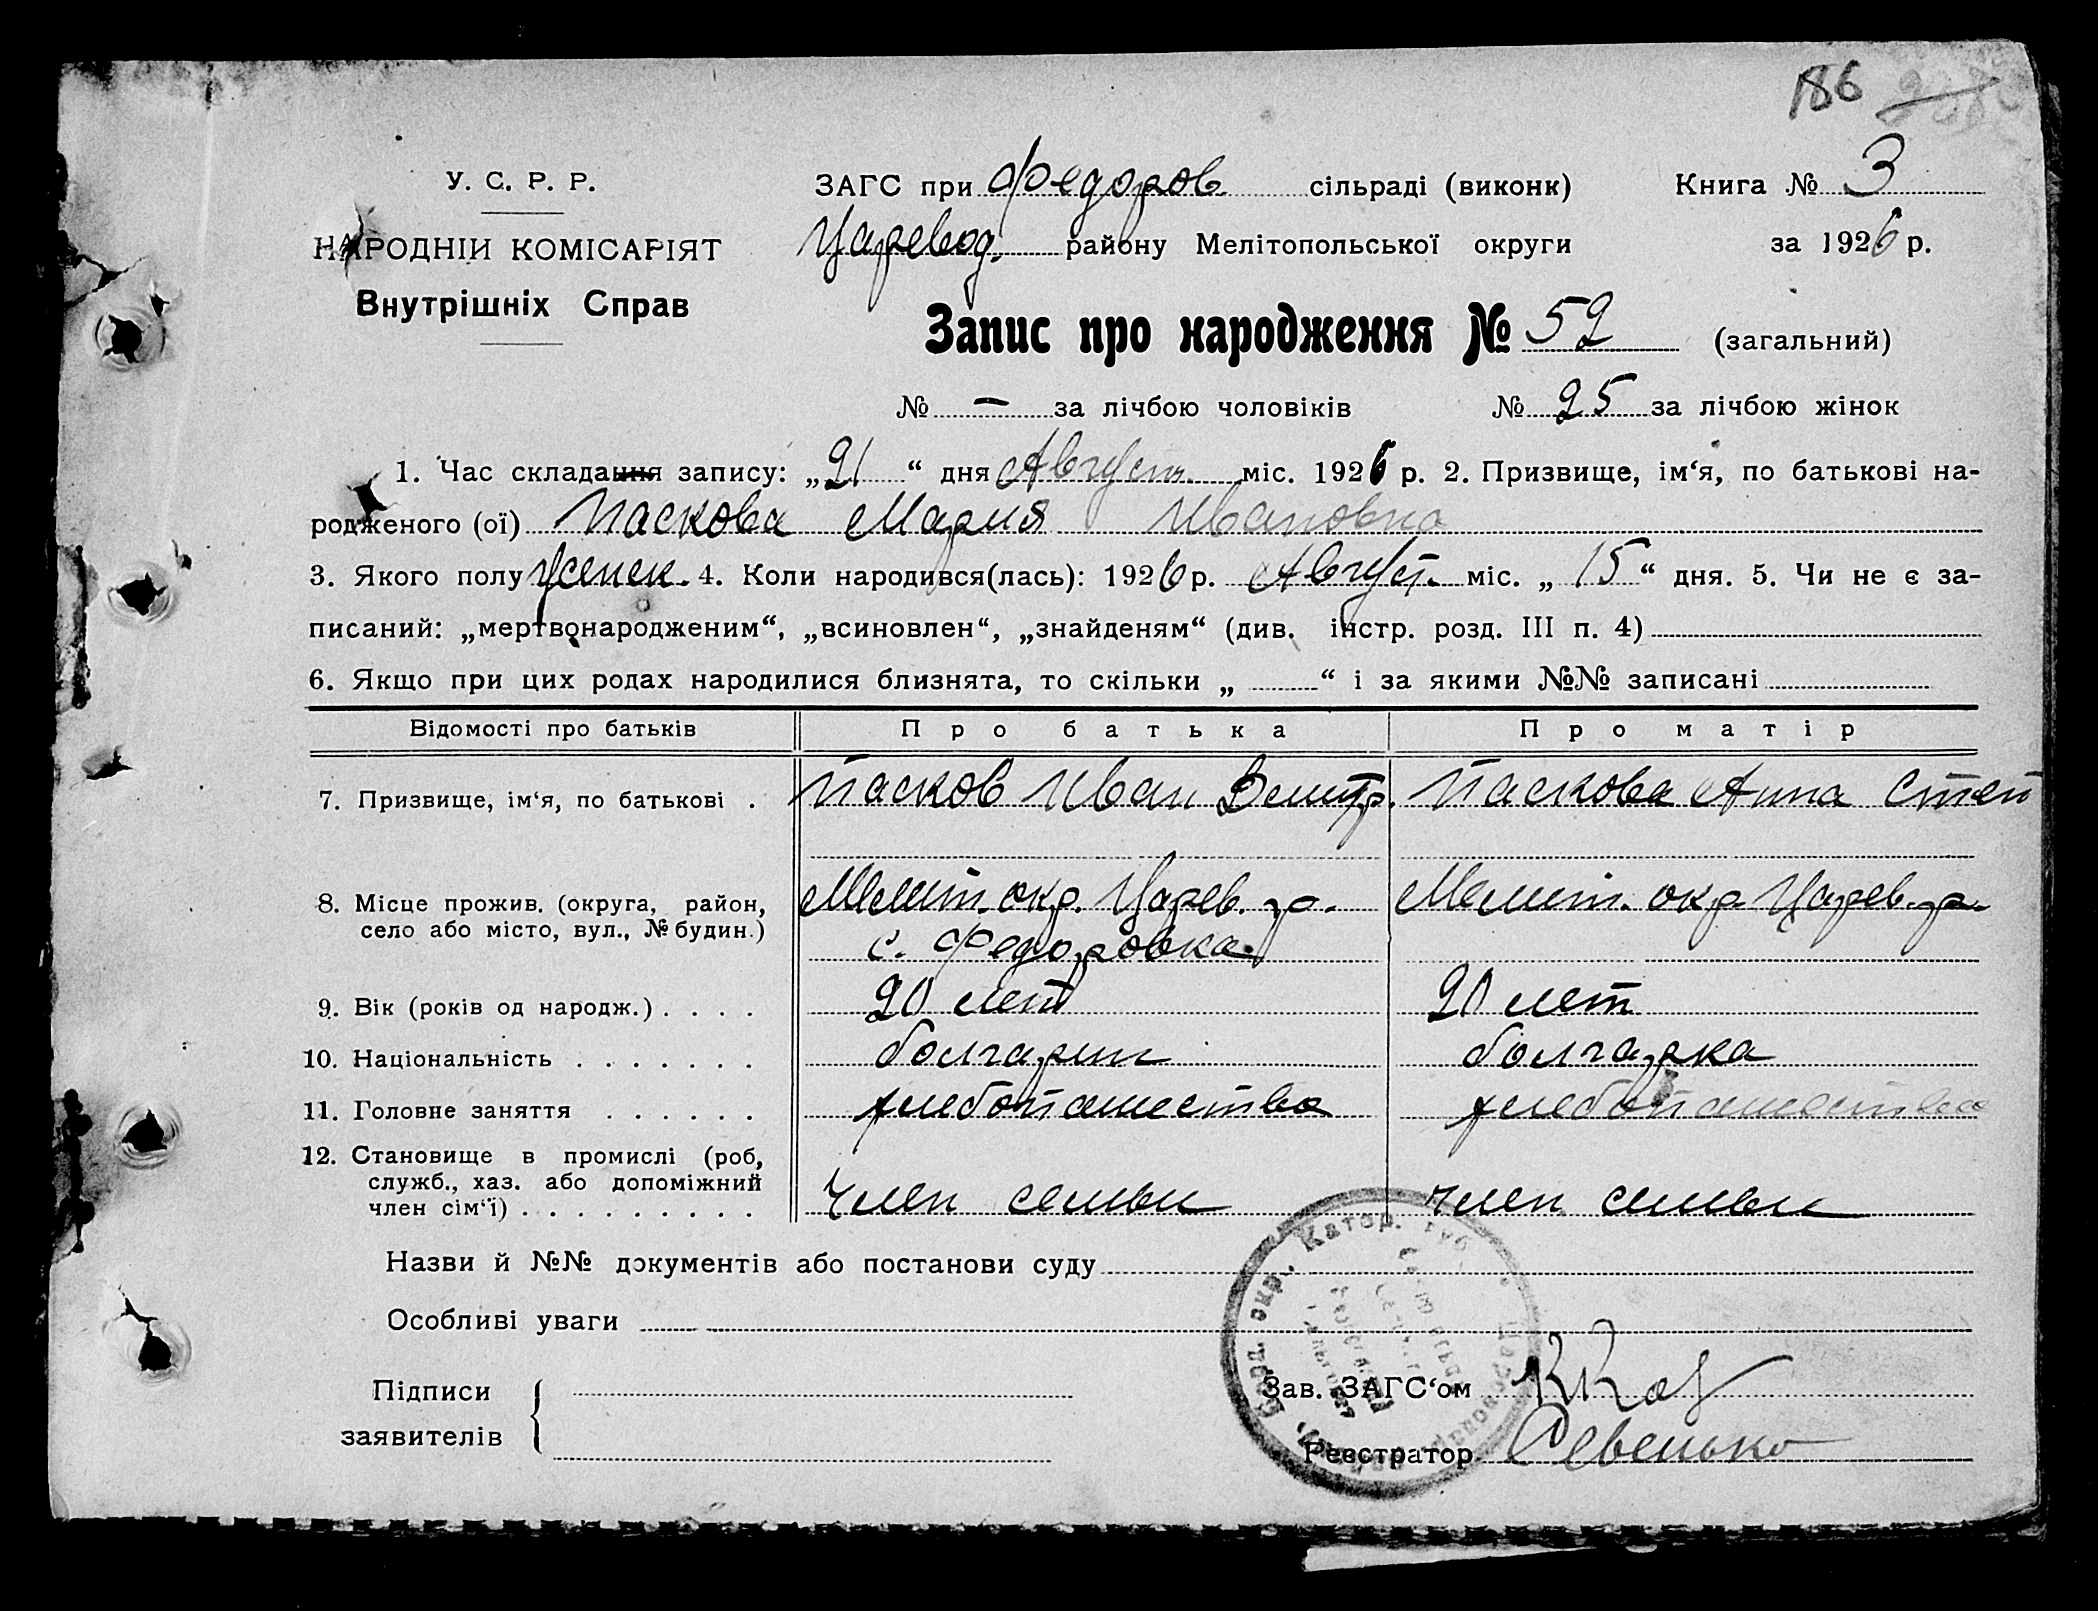 186
У. С. Р. Р.
ЗАГС при Федоров сільраді (виконк)
Книга № 3
НАРОДНІЙ КОМІСАРІЯТ
Царевод. району Мелітопольської округи
за 1926 р.
Внутрішніх Справ
Запис про народження № 52 (загальний)
№ — за лічбою чоловіків № 25 за лічбою жінок
1. Час складання запису: „21“ дня Август міс. 1926 р. 2. Призвище, ім‘я, по батькові на-
родженого (ої) Паскова Мария Ивановна
3. Якого полу женск. 4. Коли народився(лась): 1926 р. Август. міс. „15“ дня. 5. Чи не є за-
писаний: „мертвонародженим“, „всиновлен“, „знайденям“ (див. інстр. розд. III п. 4)
6. Якщо при цих родах народилися близнята, то скільки „ “ і за якими №№ записані
Відомості про батьків Про батька Про матір
7. Призвище, ім‘я, по батькові . Пасков Иван Дмитр. Паскова Анна Степ
8. Місце прожив. (округа, район, Мелит. окр. Царев. р. Мелит. окр Царев. р.
село або місто, вул., № будин.) с. Федоровка
9. Вік (років од народж.) . . . . 20 лет 20 лет
10. Національність . . . . . . . болгарин болгарка
11. Головне заняття . . . . . . хлебопашество хлебопашество
12. Становище в промислі (роб,
служб., хаз. або допоміжний
член сім‘ї) . . . . . . . . . член семьи член семьи
Назви й №№ документів або постанови суду
Особливі уваги
Підписи
заявителів
Зав. ЗАГС‘ом
Реєстратор
Катор. губ.
окр.